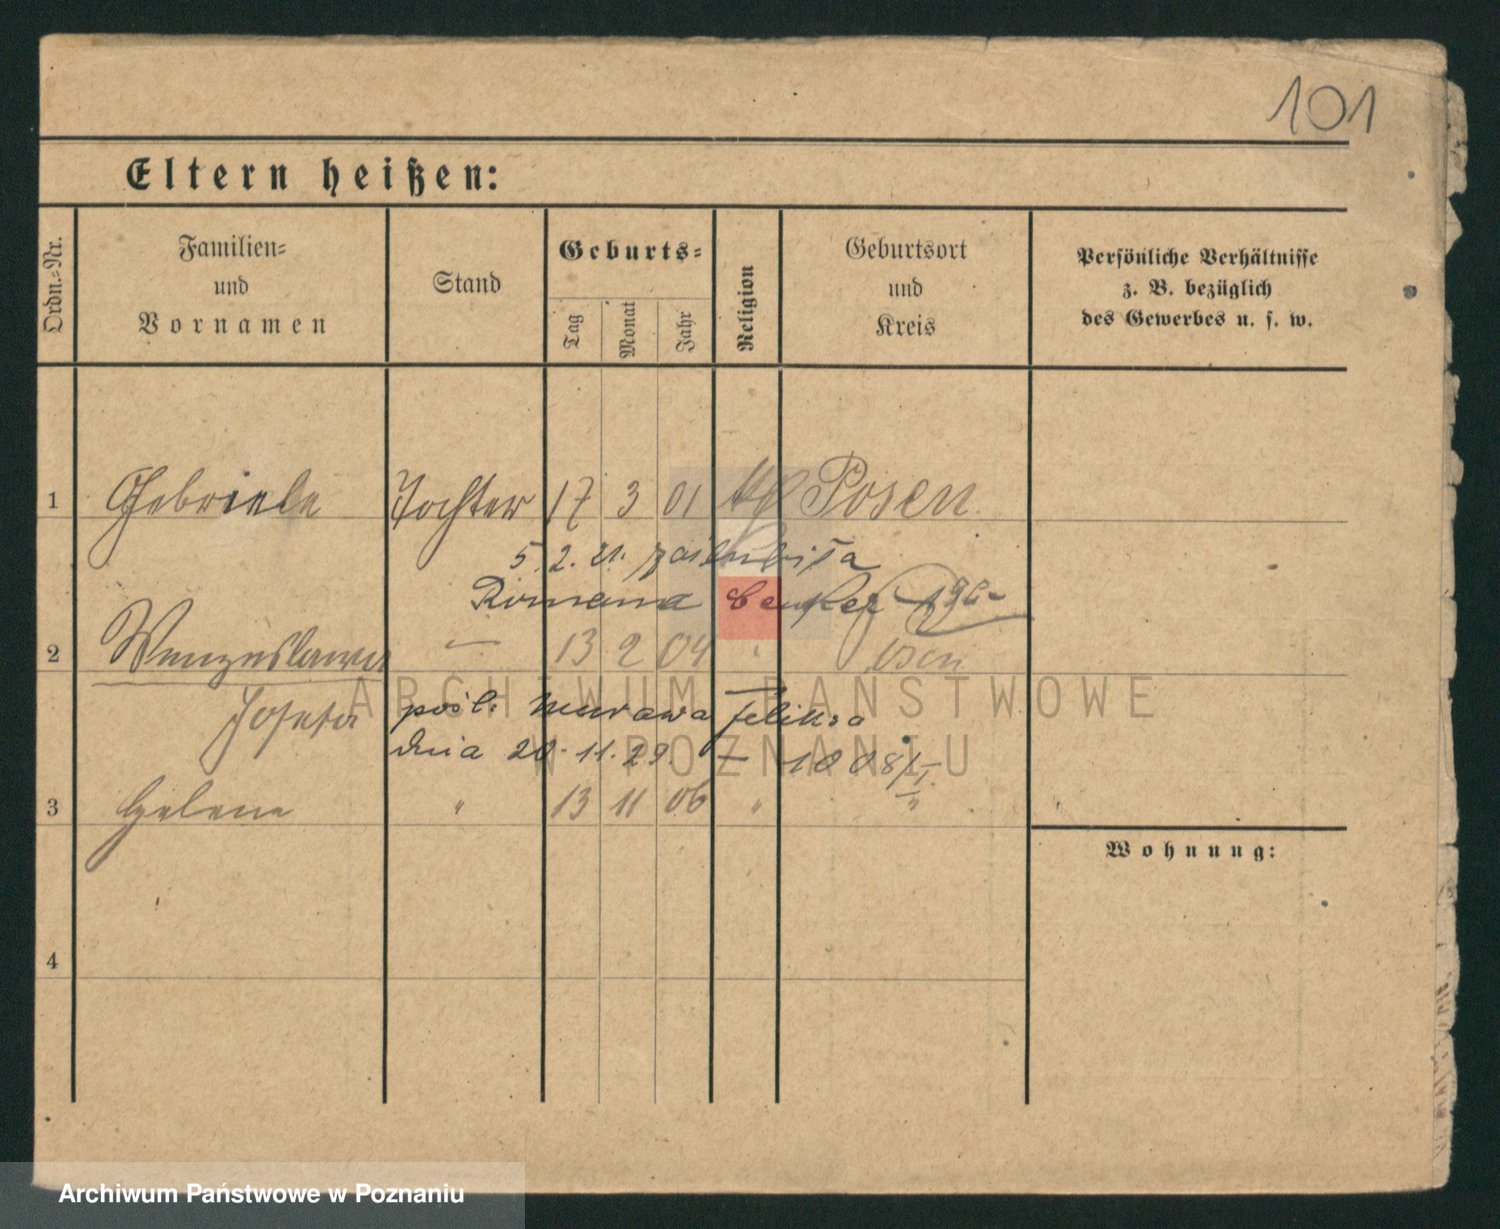 101
Eltern heißen:
Ordn.-Nr.
Familien-
und
Vornamen
Stand
Geburts-
Tag
Monat
Jahr
Religion
Geburtsort
und
Kreis
Persönliche Verhältnisse
z. B. bezüglich
des Gewerbes u. s. w.
1 Gebriele Tochter 17 3 01 Posen
5.2.21. zaślubiła
Romana
2 Wenzeslawa — 13 2 04 " Posen
Josefa pośl. Murawa Feliksa
dnia 20.11.29. —
3 Helene " 13 11 06 " "
Wohnung:
4
ARCHIWUM PAŃSTWOWE
W POZNANIU
Archiwum Państwowe w Poznaniu